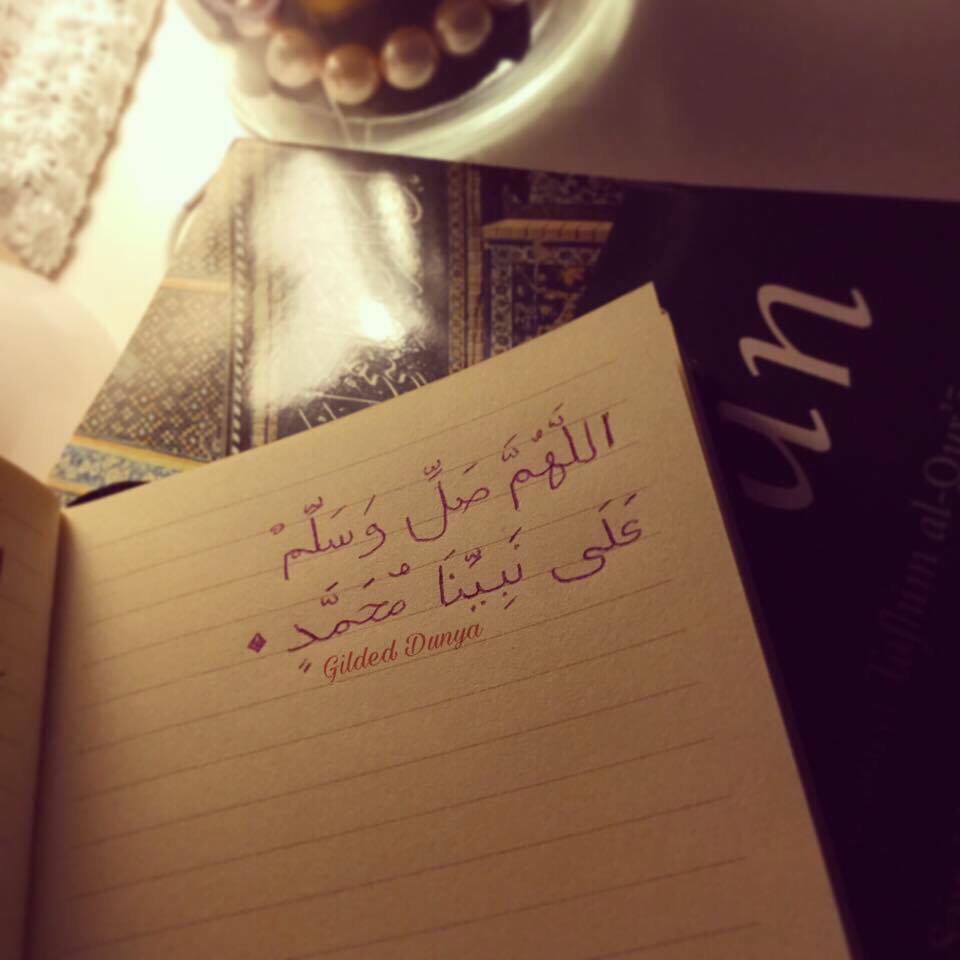 اللَّهُمَّ صَلِّ وَسَلِّمْ
عَلَى نَبِيِّنَا مُحَمَّدٍ
Gilded Dunya
un
al-Qur'a